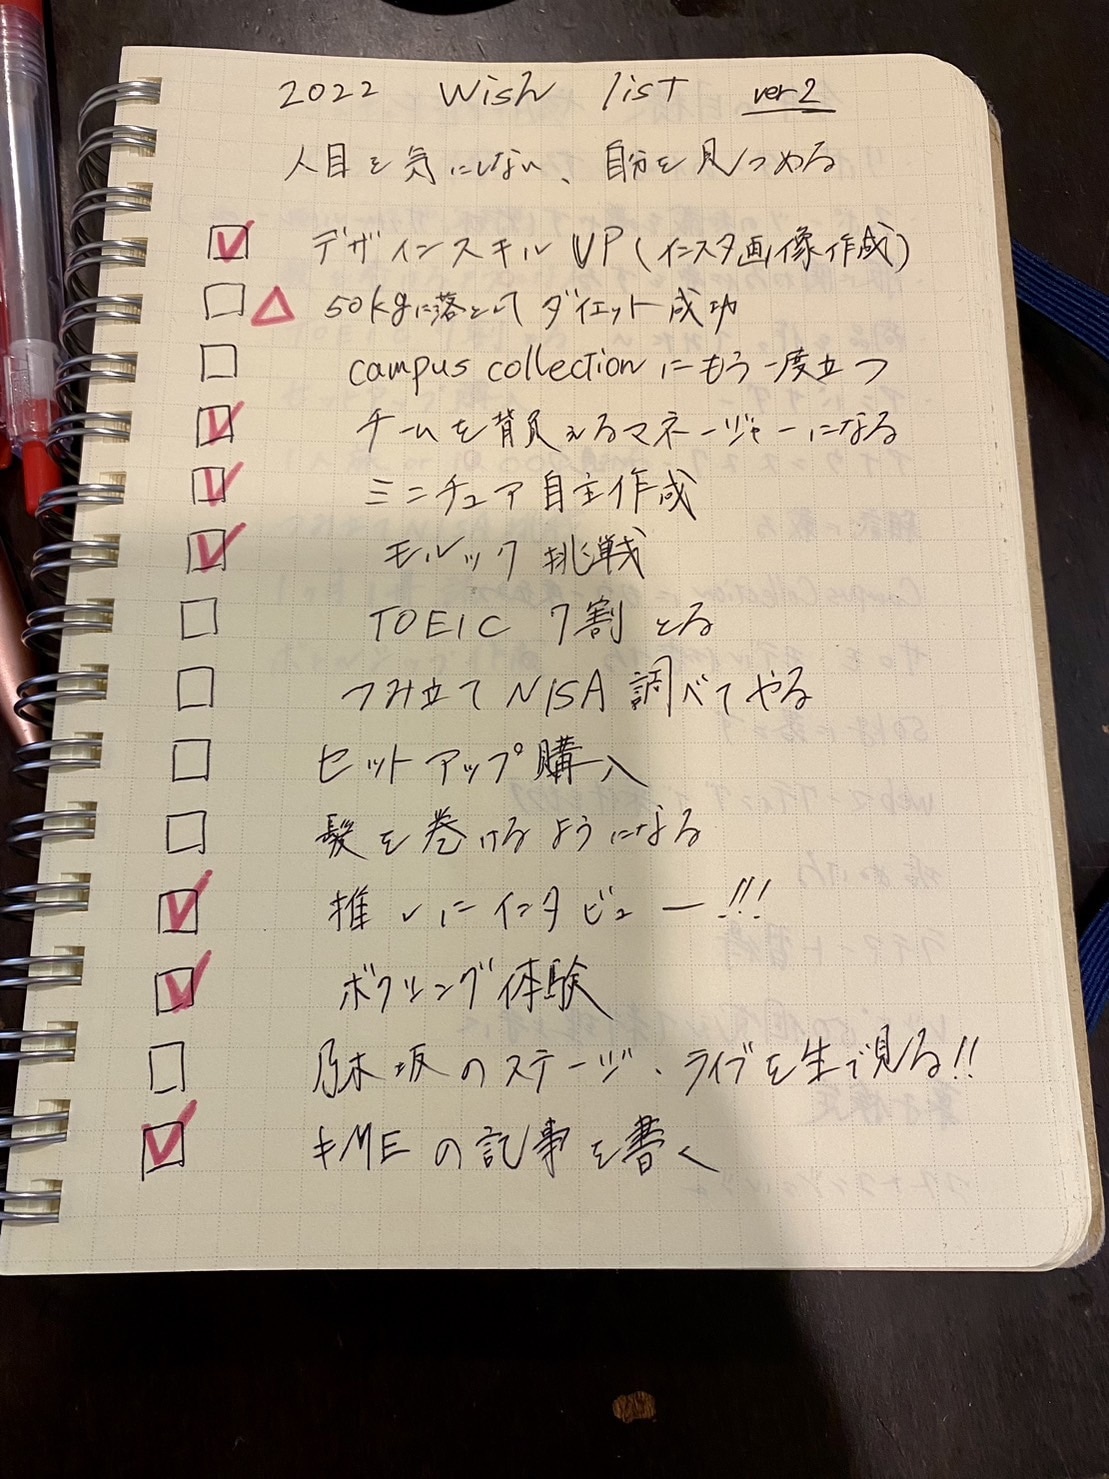 2022 Wish list ver2
人目を気にしない、自分を見つめる
デザインスキルUP(インスタ画像作成)
50kgに落としてダイエット成功
campus collectionにもう一度立つ
チームを背負えるマネージャーになる
ミニチュア自主作成
モルック挑戦
TOEIC 7割とる
つみ立てNISA調べてやる
セットアップ購入
髪を巻けるようになる
推しにインタビュー!!!
ボクシング体験
乃木坂のステージ、ライブを生で見る!!
キMEの記事を書く